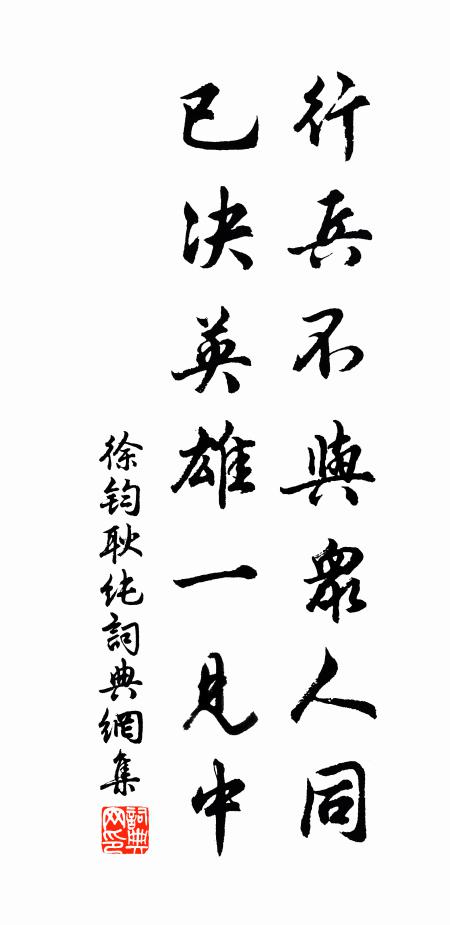 行兵不與衆人同
已決英雄一見中
徐鈞耿純詞典網集
詞典网印